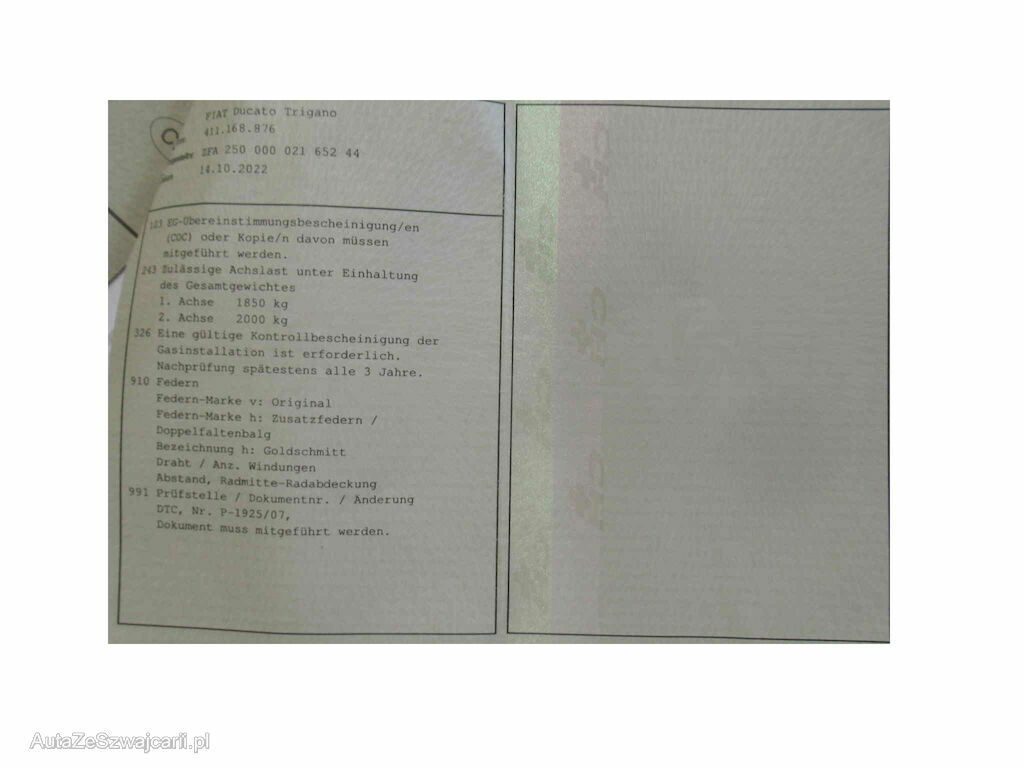 FIAT Ducato Trigano
411.168.876
ZFA 250 000 021 652 44
14.10.2022
183 EG-Übereinstimmungsbescheinigung/en
(COC) oder Kopie/n davon müssen
mitgeführt werden.
243 Zulässige Achslast unter Einhaltung
des Gesamtgewichtes
1. Achse 1850 kg
2. Achse 2000 kg
326 Eine gültige Kontrollbescheinigung der
Gasinstallation ist erforderlich.
Nachprüfung spätestens alle 3 Jahre.
910 Federn
Federn-Marke v: Original
Federn-Marke h: Zusatzfedern /
Doppelfaltenbalg
Bezeichnung h: Goldschmitt
Draht / Anz. Windungen
Abstand, Radmitte-Radabdeckung
991 Prüfstelle / Dokumentnr. / Änderung
DTC, Nr. P-1925/07,
Dokument muss mitgeführt werden.
CH
CH
CH
AutaZeSzwajcarii.pl